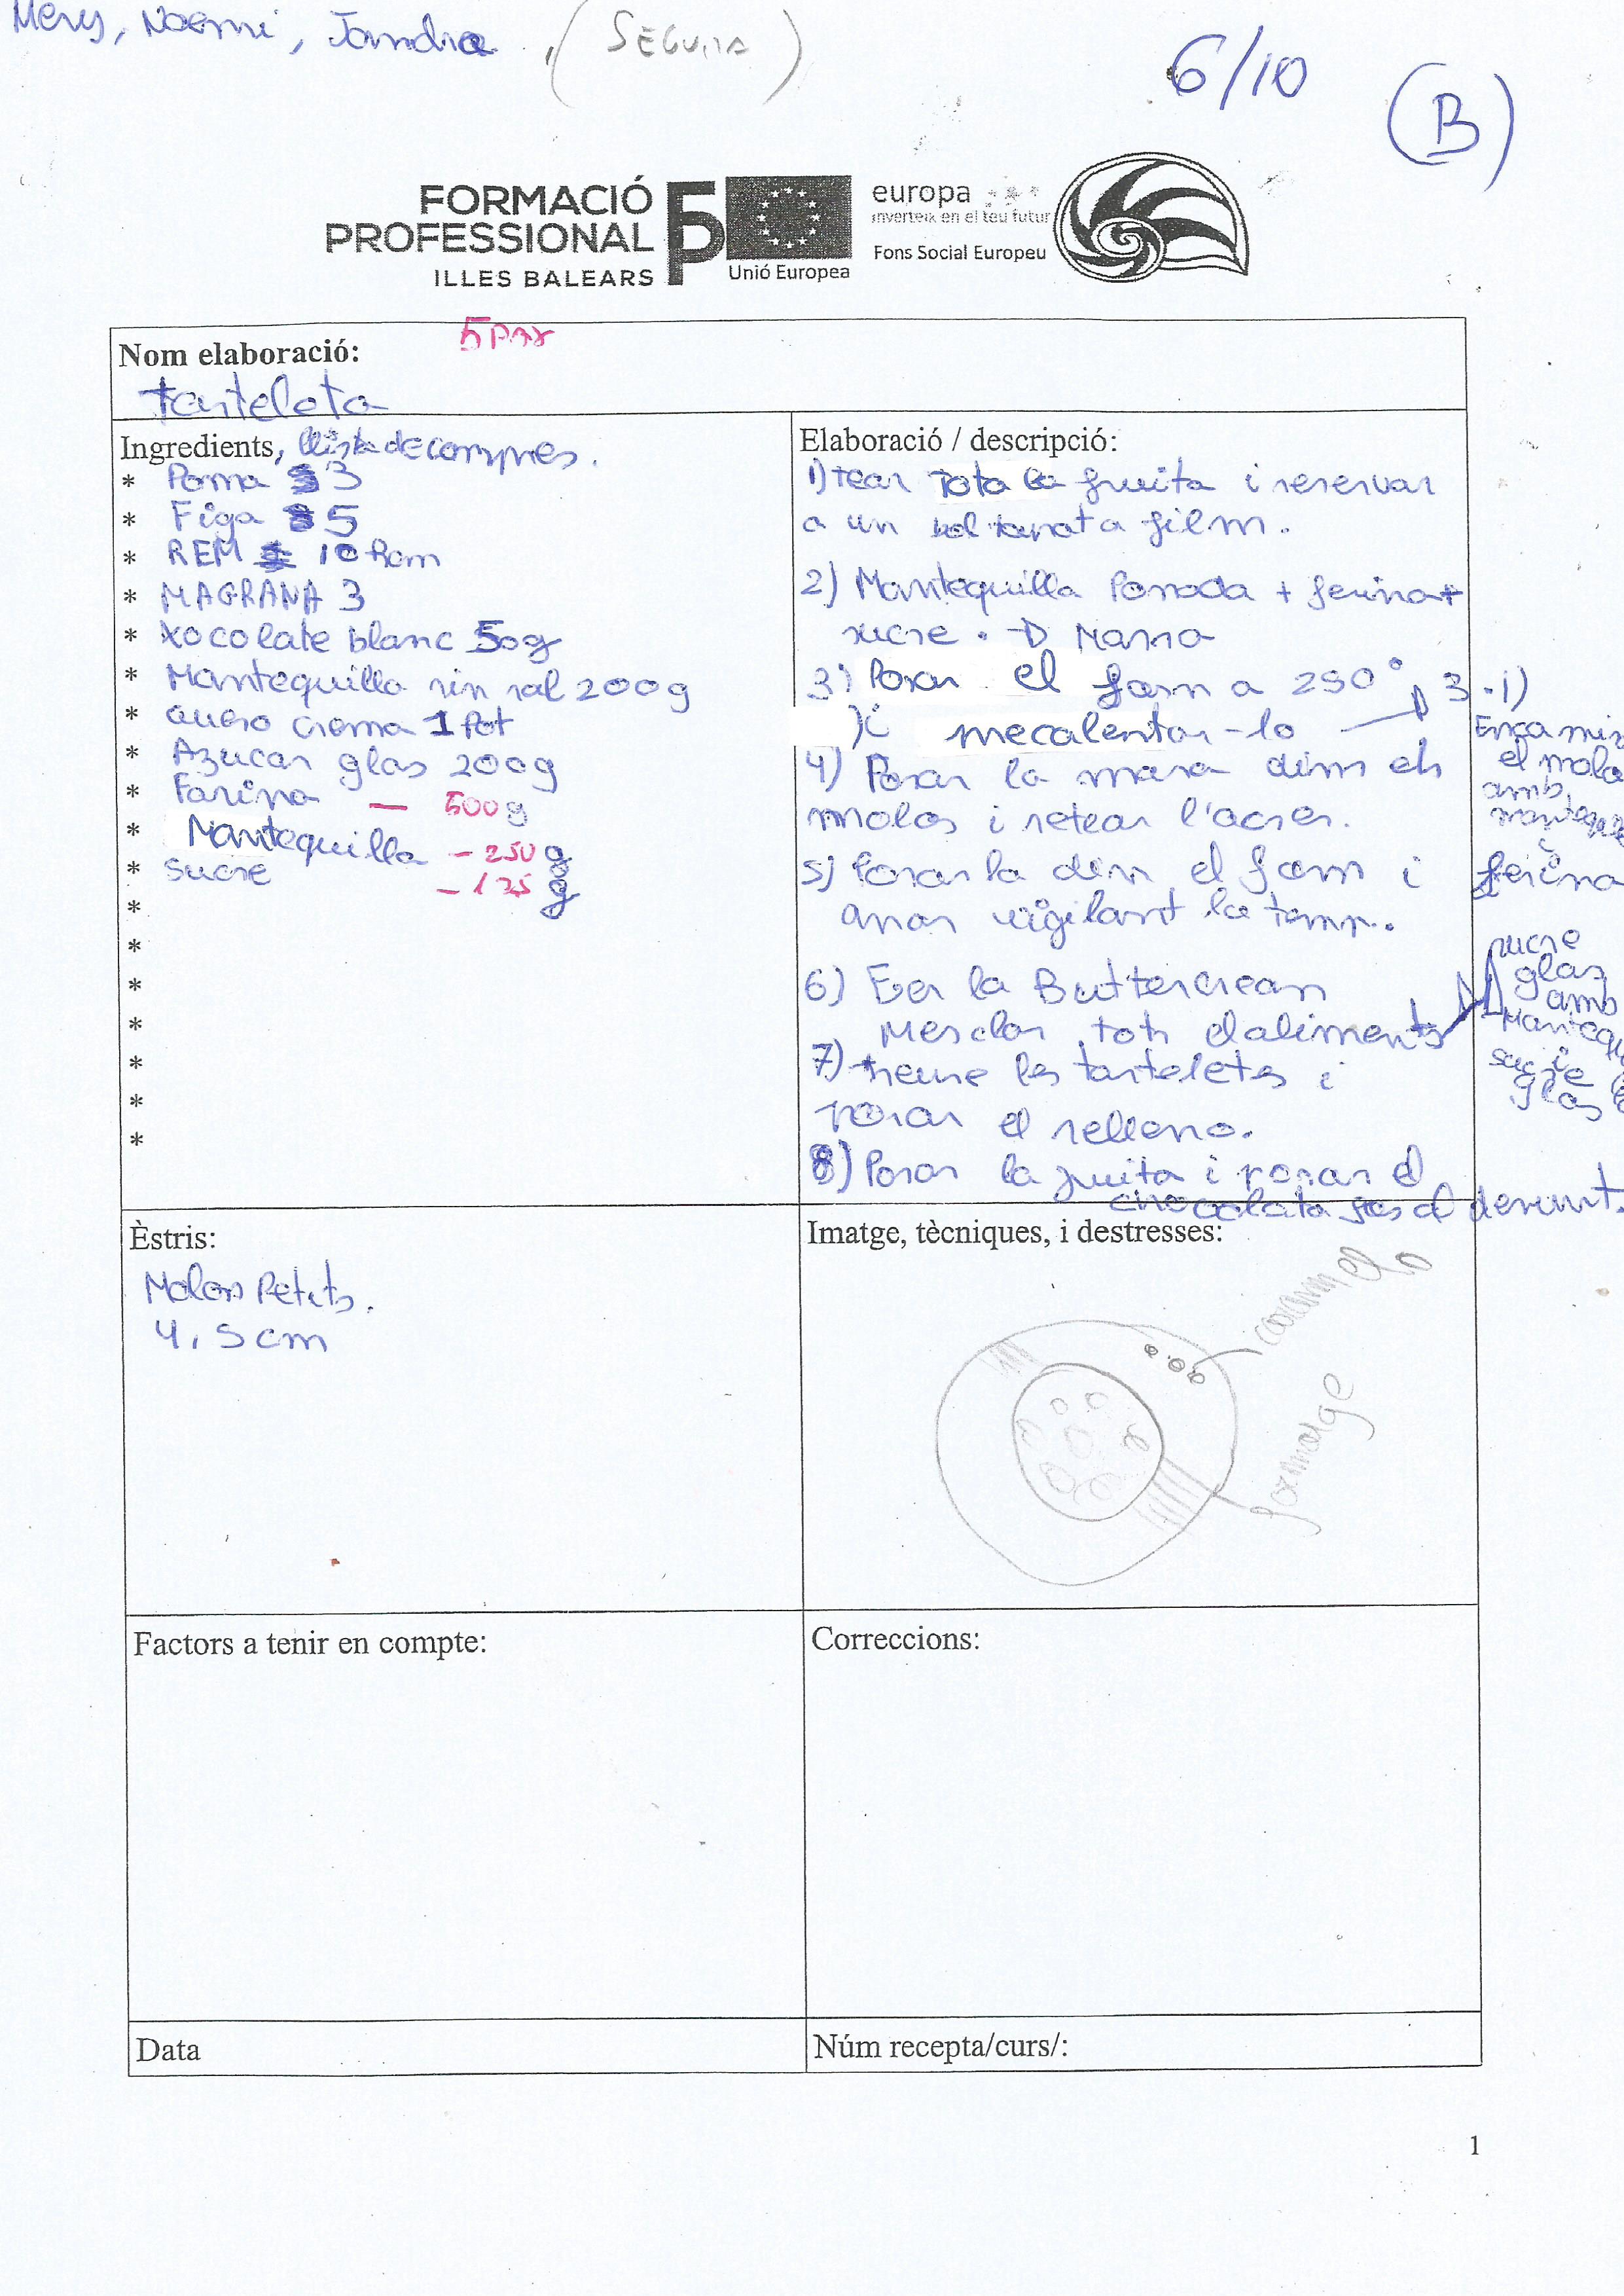 Mery, Noemi, Jandra (SEGUIRA)
6/10
(B)
FORMACIÓ
PROFESSIONAL
ILLES BALEARS
Unió Europea
europa
inverteix en el teu futur
Fons Social Europeu
Nom elaboració: 5 Pax
tarteleta
Ingredients, llista de compres.
* Poma 3
* Figa 5
* REM 10 Rem
* MAGRANA 3
* Xocolate blanc 50g
* Mantequilla sin sal 200g
* queso crema 1 Pot
* Azucar glas 200g
* Farina — 500g
* Mantequilla - 250 g
* Sucre - 125 g
*
*
*
*
*
*
*
Elaboració / descripció:
1) tear Tota la fruita i reservar
a un film.
2) Mantequilla Pomada + ferina +
sucre. → Massa
3) Posar el forn a 250° 3.1)
)i mecalentar-lo
Enca
el mola
amb
i
ferina
4) Posar la massa dims els
molos i retear l'acses.
5) Posar la din el forn i
anar vigilant la temp.
6) Fer la Buttercream
Mesclar tots elaliments
sucre
glas
amb
Mantequ
i
sucre
glas
7) treure les tarteletes i
posar el relleno.
8) Posar la fruita i posar el
chocolata per al devunt.
Èstris:
Molos Petits.
4,5 cm
Imatge, tècniques, i destresses:
caramelo
formatge
Factors a tenir en compte:
Correccions:
Data
Núm recepta/curs/:
1